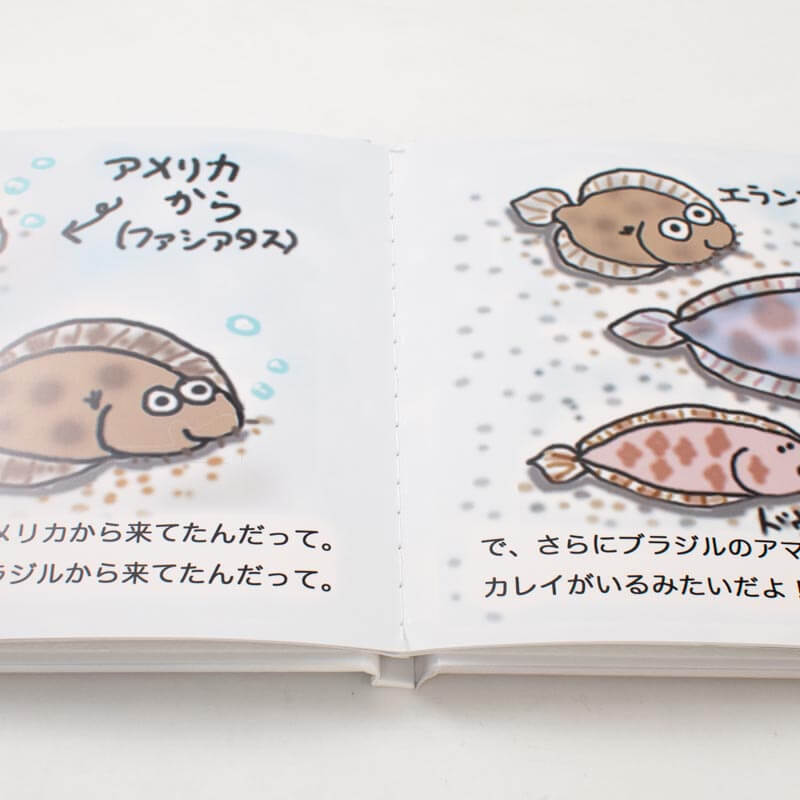 アメリカ
から
(ファシアタス)
メリカから来てたんだって。
ラジルから来てたんだって。
エラン
で、さらにブラジルのアマ
カレイがいるみたいだよ!